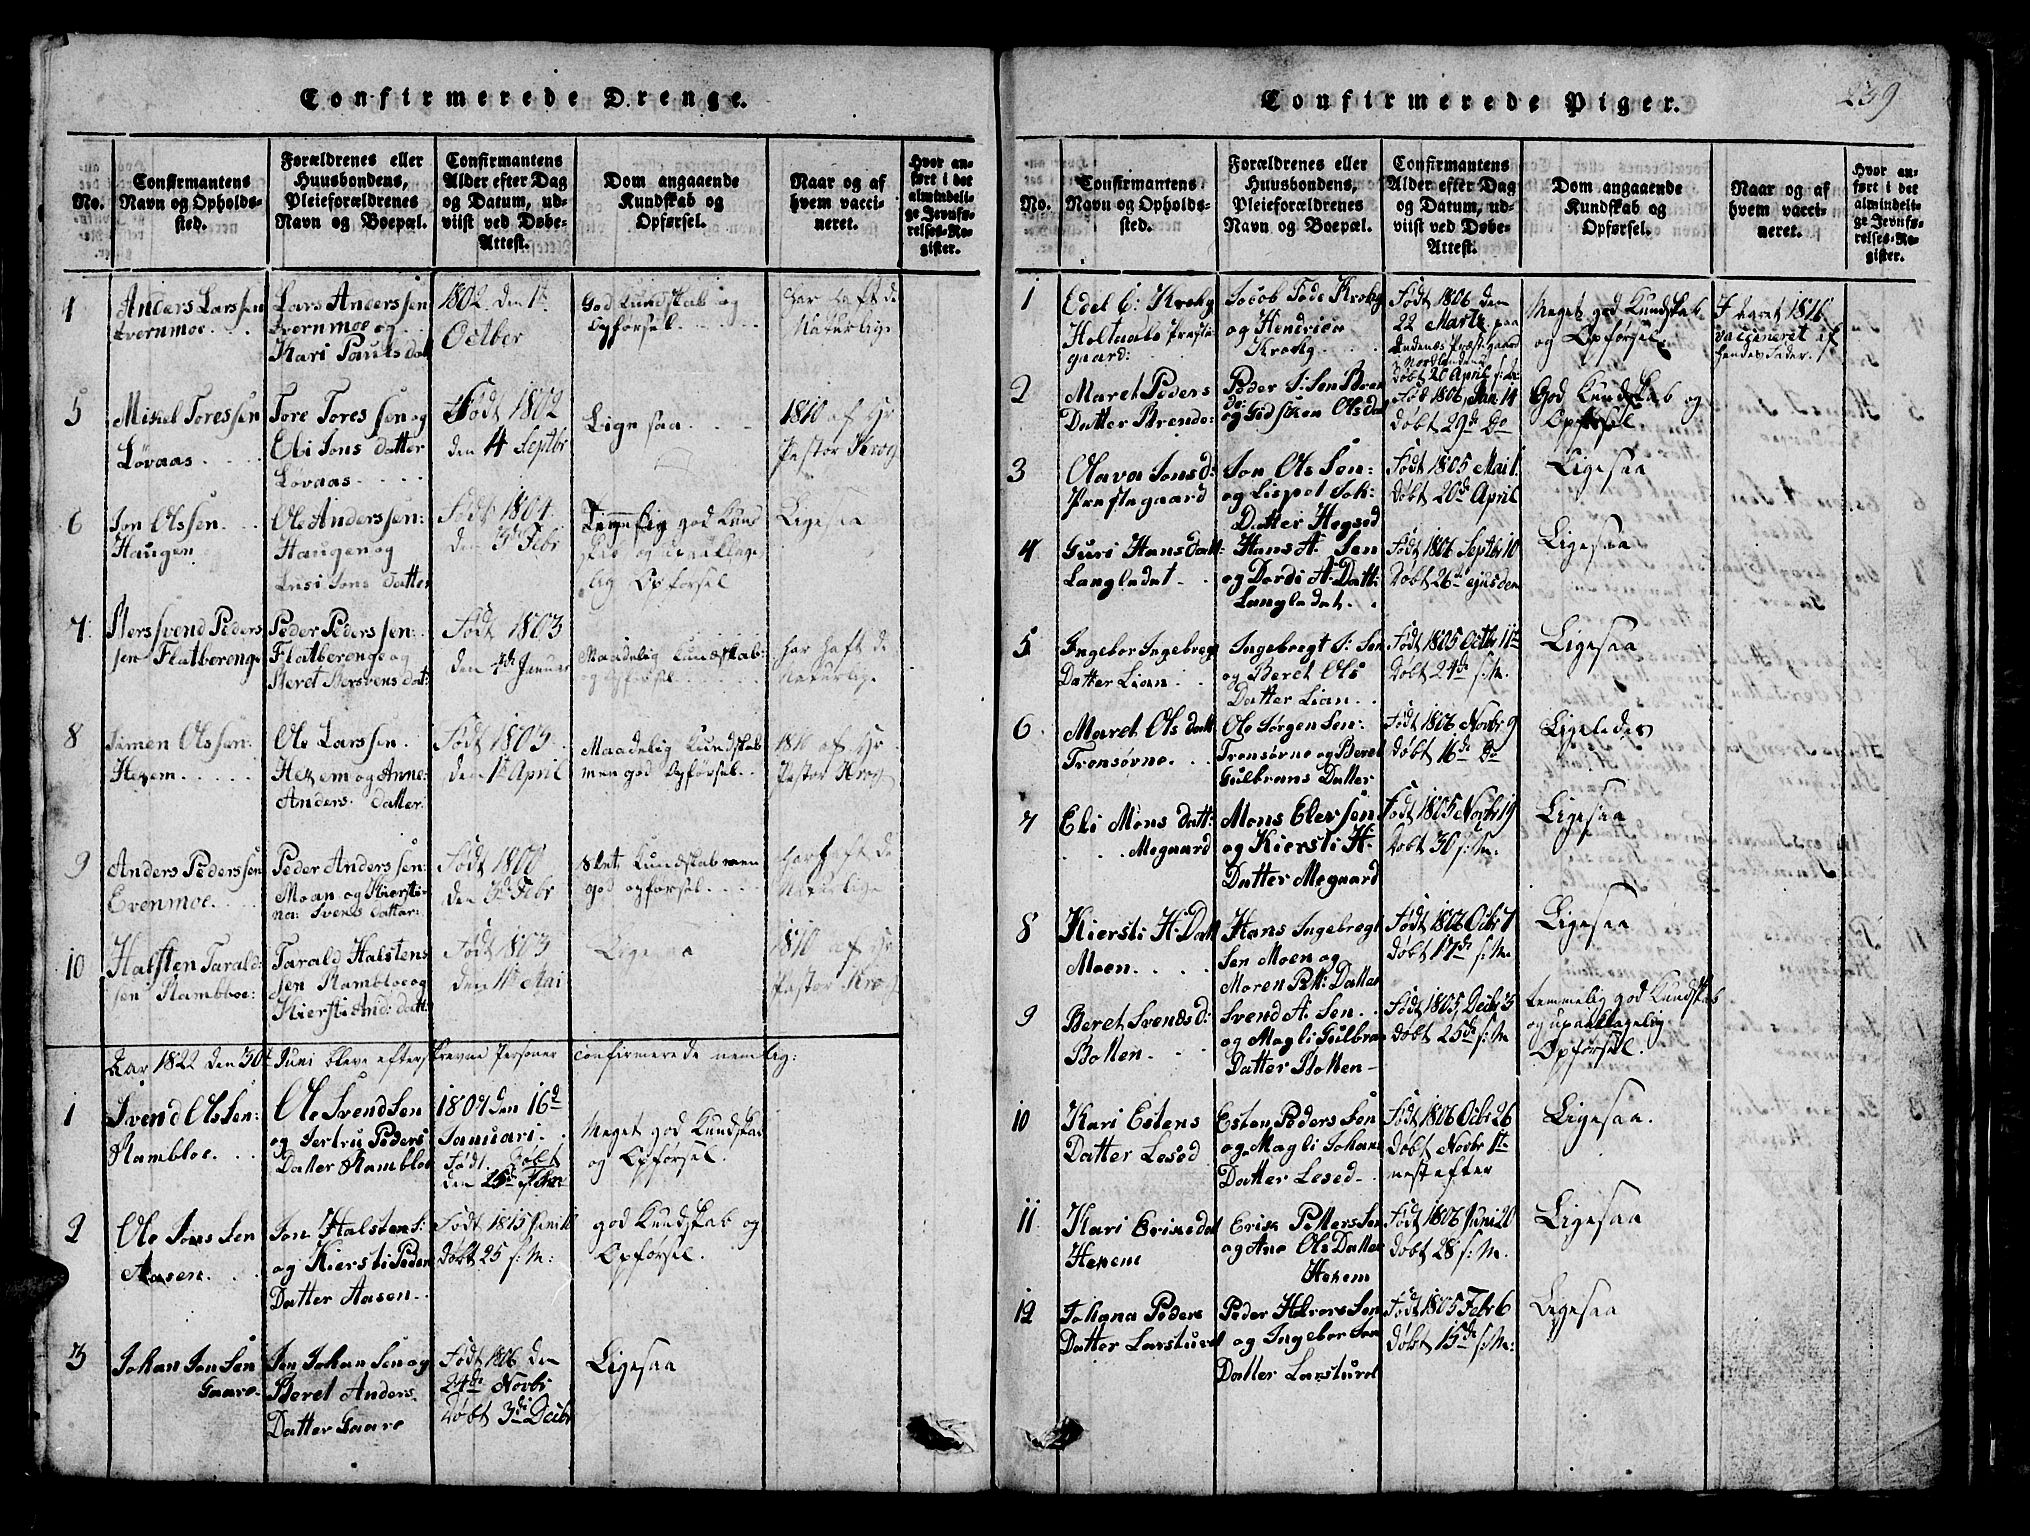 Confirmerede Drenge.
No.
Confirmantens
Navn og Opholds-
sted.
Forældrenes eller
Huusbondens,
Pleieforældrenes
Navn og Boepæl.
Confirmantens
Alder efter Dag
og Datum, ud-
viist ved Døbe-
Attest.
Dom angaaende
Kundskab og
Opførsel.
Naar og af
hvem vacci-
neret.
Hvor an-
ført i det
almindeli-
ge Jevnfø-
relses-Re-
gister.
4
Anders Larssen
Evernmoe
Lars Anderssen
Evernmoe og
Kari Pauls dat
1802 den 1te
Octber
God Kundskab og
Opførsel
har haft de
Naturlige
5
Mikel Toressen
Løvaas
Tore Toressen og
Eli Jons datter
Lovaas
Født 1802
den 4 Septbr
Ligesaa
1810 af Hr
Pastor Krog
6
Jon Olssen
Haugen
Ole Anderssen:
Haugen og
Lusi Jons datter
Født 1804
den 3de Febr
Temelig god Kund
skab og upaaklage
lig Opførsel
Ligesaa
7
Stersvend Peders
sen Flatberenge
Peder Pederssen:
Flatberenge og
Beret Stersvens dat:
Født 1803
den 4de Januar
Maadelig Kundskab
og Opførsel
har haft de
Naturlige
8
Simen Olssen:
Hexem
Ole Larssen
Hexem og Anne
Anders datter
Født 1803
den 1te April
Maadelig Kundskab
men god Opførsel
1810 af Hr
Pastor Krog
9
Anders Pederssen
Evenmoe
Peder Anderssen:
Moan og Kiersti-
na Svens datter:
Født 1800
den 3de Febr
Slet Kundskab men
god opførsel
har haft de
Naturlige
10
Halsten Tarald:
sen Rambloe:
Tarald Halstens
sen Rambloe og
Kiersti And: datt:
Født 1803
den 11te Mai
Ligesaa
1810 af Hr
Pastor Krog
Aar 1822 den 30t Juni bleve efterskrevne Personer confirmerede nemlig:
1
Svend Olssen:
Rambloe
Ole Svendsen
og Jertru Peders
Datter Rambloe
1807 den 16d
Januari
Født Døbt
den 15de Febr
Meget god Kundskab
og Opførsel
2
Ole Jons Sen
Aasen
Jon Halsten S:
og Kiersti Peders
Datter Aasen
Født 1805 Juni 11
Døbt 25 s: M:
god Kundskab og
Opførsel.
3
Johan Jon Sen
Gaare
Jon Johan Sen og
Beret Anders
Datter Gaare
Født 1806 den
24de Novbr
Døbt 3de Decbr
Ligesaa
Confirmerede Piger.
239
No.
Confirmantens
Navn og Opholds-
sted.
Forældrenes eller
Huusbondens,
Pleieforældrenes
Navn og Boepæl.
Confirmantens
Alder efter Dag
og Datum, ud-
viist ved Døbe-
Attest.
Dom angaaende
Kundskab og
Opførsel.
Naar og af
hvem vacci-
neret.
Hvor an-
ført i det
almindeli-
ge Jevnfø-
relses-Re-
gister.
1
Edel C: Krokg
Holtaals Præste
gaard:
Jocob Tode Krokg
og Hendrica
Krokg
Født 1806 den
22 Marts paa
Andenæs Præstegaard
i Nordlandene
Døbt 20 April
Meget god Kundskab
og Opførsel
I Aaret 1816
vaccineret af
hendes Fader.
2
Maret Peders
Datter Brende:
Peder J: Sen Bren
de:
og Gidsken Olsdat
Fød 1806, Jan: 14
døbt 29de Do
God Kundskab og
Opførsel
3
Olava Jonsd:
Præstegaard
Jon Ols Sen:
og Lispet Joh:
Datter Hegsed
Født 1805 Mai 1
Døbt 20de April
Ligesaa
4
Guri Hans datt:
Langladet
Hans A: Sen
og Dordi A: Datt:
Langladet
Født 1806 Septbr 10
Døbt 26de ejusdem
Ligesaa
5
Ingebor Ingebregt
Datter Lian
Ingebregt J: Sen
og Beret Ols
Datter Lian
Født 1805 Octbr 11te
Døbt 24de s: M.
Ligesaa
6
Maret Ols datt
Tronsøvne
Ole Jørgen Sen:
Tronsøvne og Beret
Gulbrans Datter
Født 1806 Novbr 9
døbt 16de Do
Ligeledes
7
Eli Mons datt:
Megaard
Mons Elevsen
og Kiersti H:
Datter Megaard
Født 1805 Novbr 19
Døbt 30 s: M.
Ligesaa
8
Kiersti H: Datt
Moen
Hans Ingebregt
Sen Moen og
Maren P: Datter
Født 1806 Octbr 7
døbt 17de s: M.
Ligesaa
9
Beret Svensd:
Bolten
Svend A: Sen
og Magli Gulbran
Datter Bolten
Født 1805, Decbr 5
døbt 25de s: M
temmelig god Kundskab
og upaaklagelig
Opførsel.
10
Kari Estens
Datter Lesed
Esten Peders Sen
og Magli Johans
Datter Lesed
Født 1806 Octbr 26
Døbt Novbr 1te
nest efter
Ligesaa.
11
Kari Eriksdat
Hexem
Erik Petters Sen
og Ane Ols Datter
Hexem
Født 1806 Juni 20
Døbt 28 s: M.
Ligesaa
12
Johana Peders
Datter Larsturel
Peder Halvors Sen
og Ingebor Jon
Datter Larsturel
Født 1805 Febr 6
Døbt 15de s: M:
Ligesaa